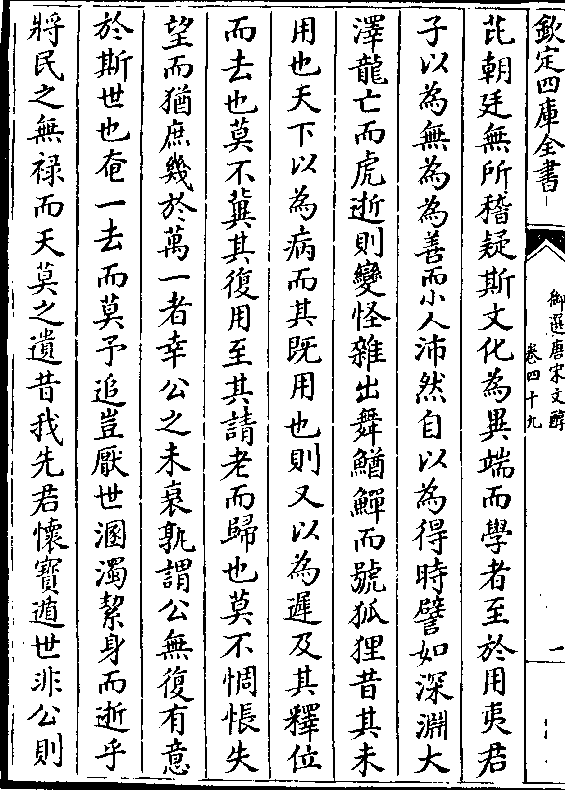 欽定四庫全書
御選唐宋文醇
卷四十九
一
芘朝廷無所稽疑斯文化為異端而學者至於用夷君
子以為無為為善而小人沛然自以為得時譬如深淵大
澤龍亡而虎逝則變怪雜出舞鰌鱓而號狐狸昔其未
用也天下以為病而其既用也則又以為遲及其釋位
而去也莫不冀其復用至其請老而歸也莫不惆悵失
望而猶庶幾於萬一者幸公之未衰孰謂公無復有意
於斯世也奄一去而莫予追豈厭世溷濁絜身而逝乎
將民之無禄而天莫之遺昔我先君懷寳遁世非公則